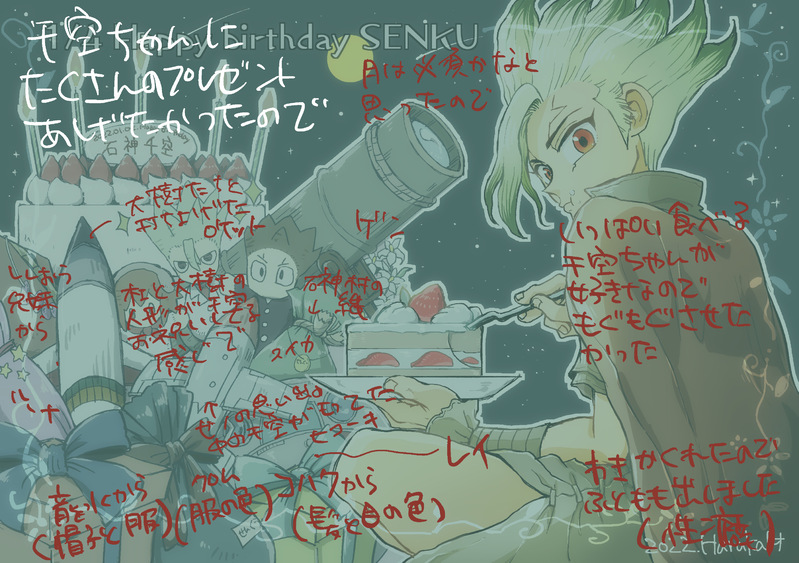 Happy Birthday SENKU
千空ちゃんに
たくさんのプレゼント
あげたかったので
月は必須かなと
思ったので
石神千空
大樹たちと
打ち上げた
ロケット
ゲン
ししおう
兄妹
から
杠と大樹の
人形が千空
お祝いしてる
感じで
石神村の
縄
スイカ
いっぱい食べる
千空ちゃんが
好きなので
もぐもぐさせた
かった
ルナ
千空が
レイ
龍水から
(帽子と服)
クロム
(服の色)
コハクから
(髪と目の色)
わきかくれたので
ふともも出しました
(性癖)
2022.Haruka